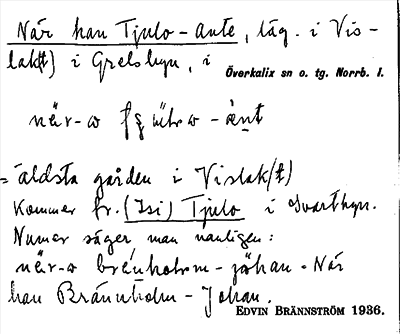 När han Tjulo-Ante, läg. i Vis-
lak(t) i Grelsbyn, i
Överkalix sn o. tg. Norrb. l.
när-
= äldsta gården i Vislak/t)
Kommer fr. (Isi) Tjulo i Svartbyn.
Numer säger man vanligen:
när-o bränholm-jåhan = När
han Brännholm-Johan.
EDVIN BRÄNNSTRÖM 1936.